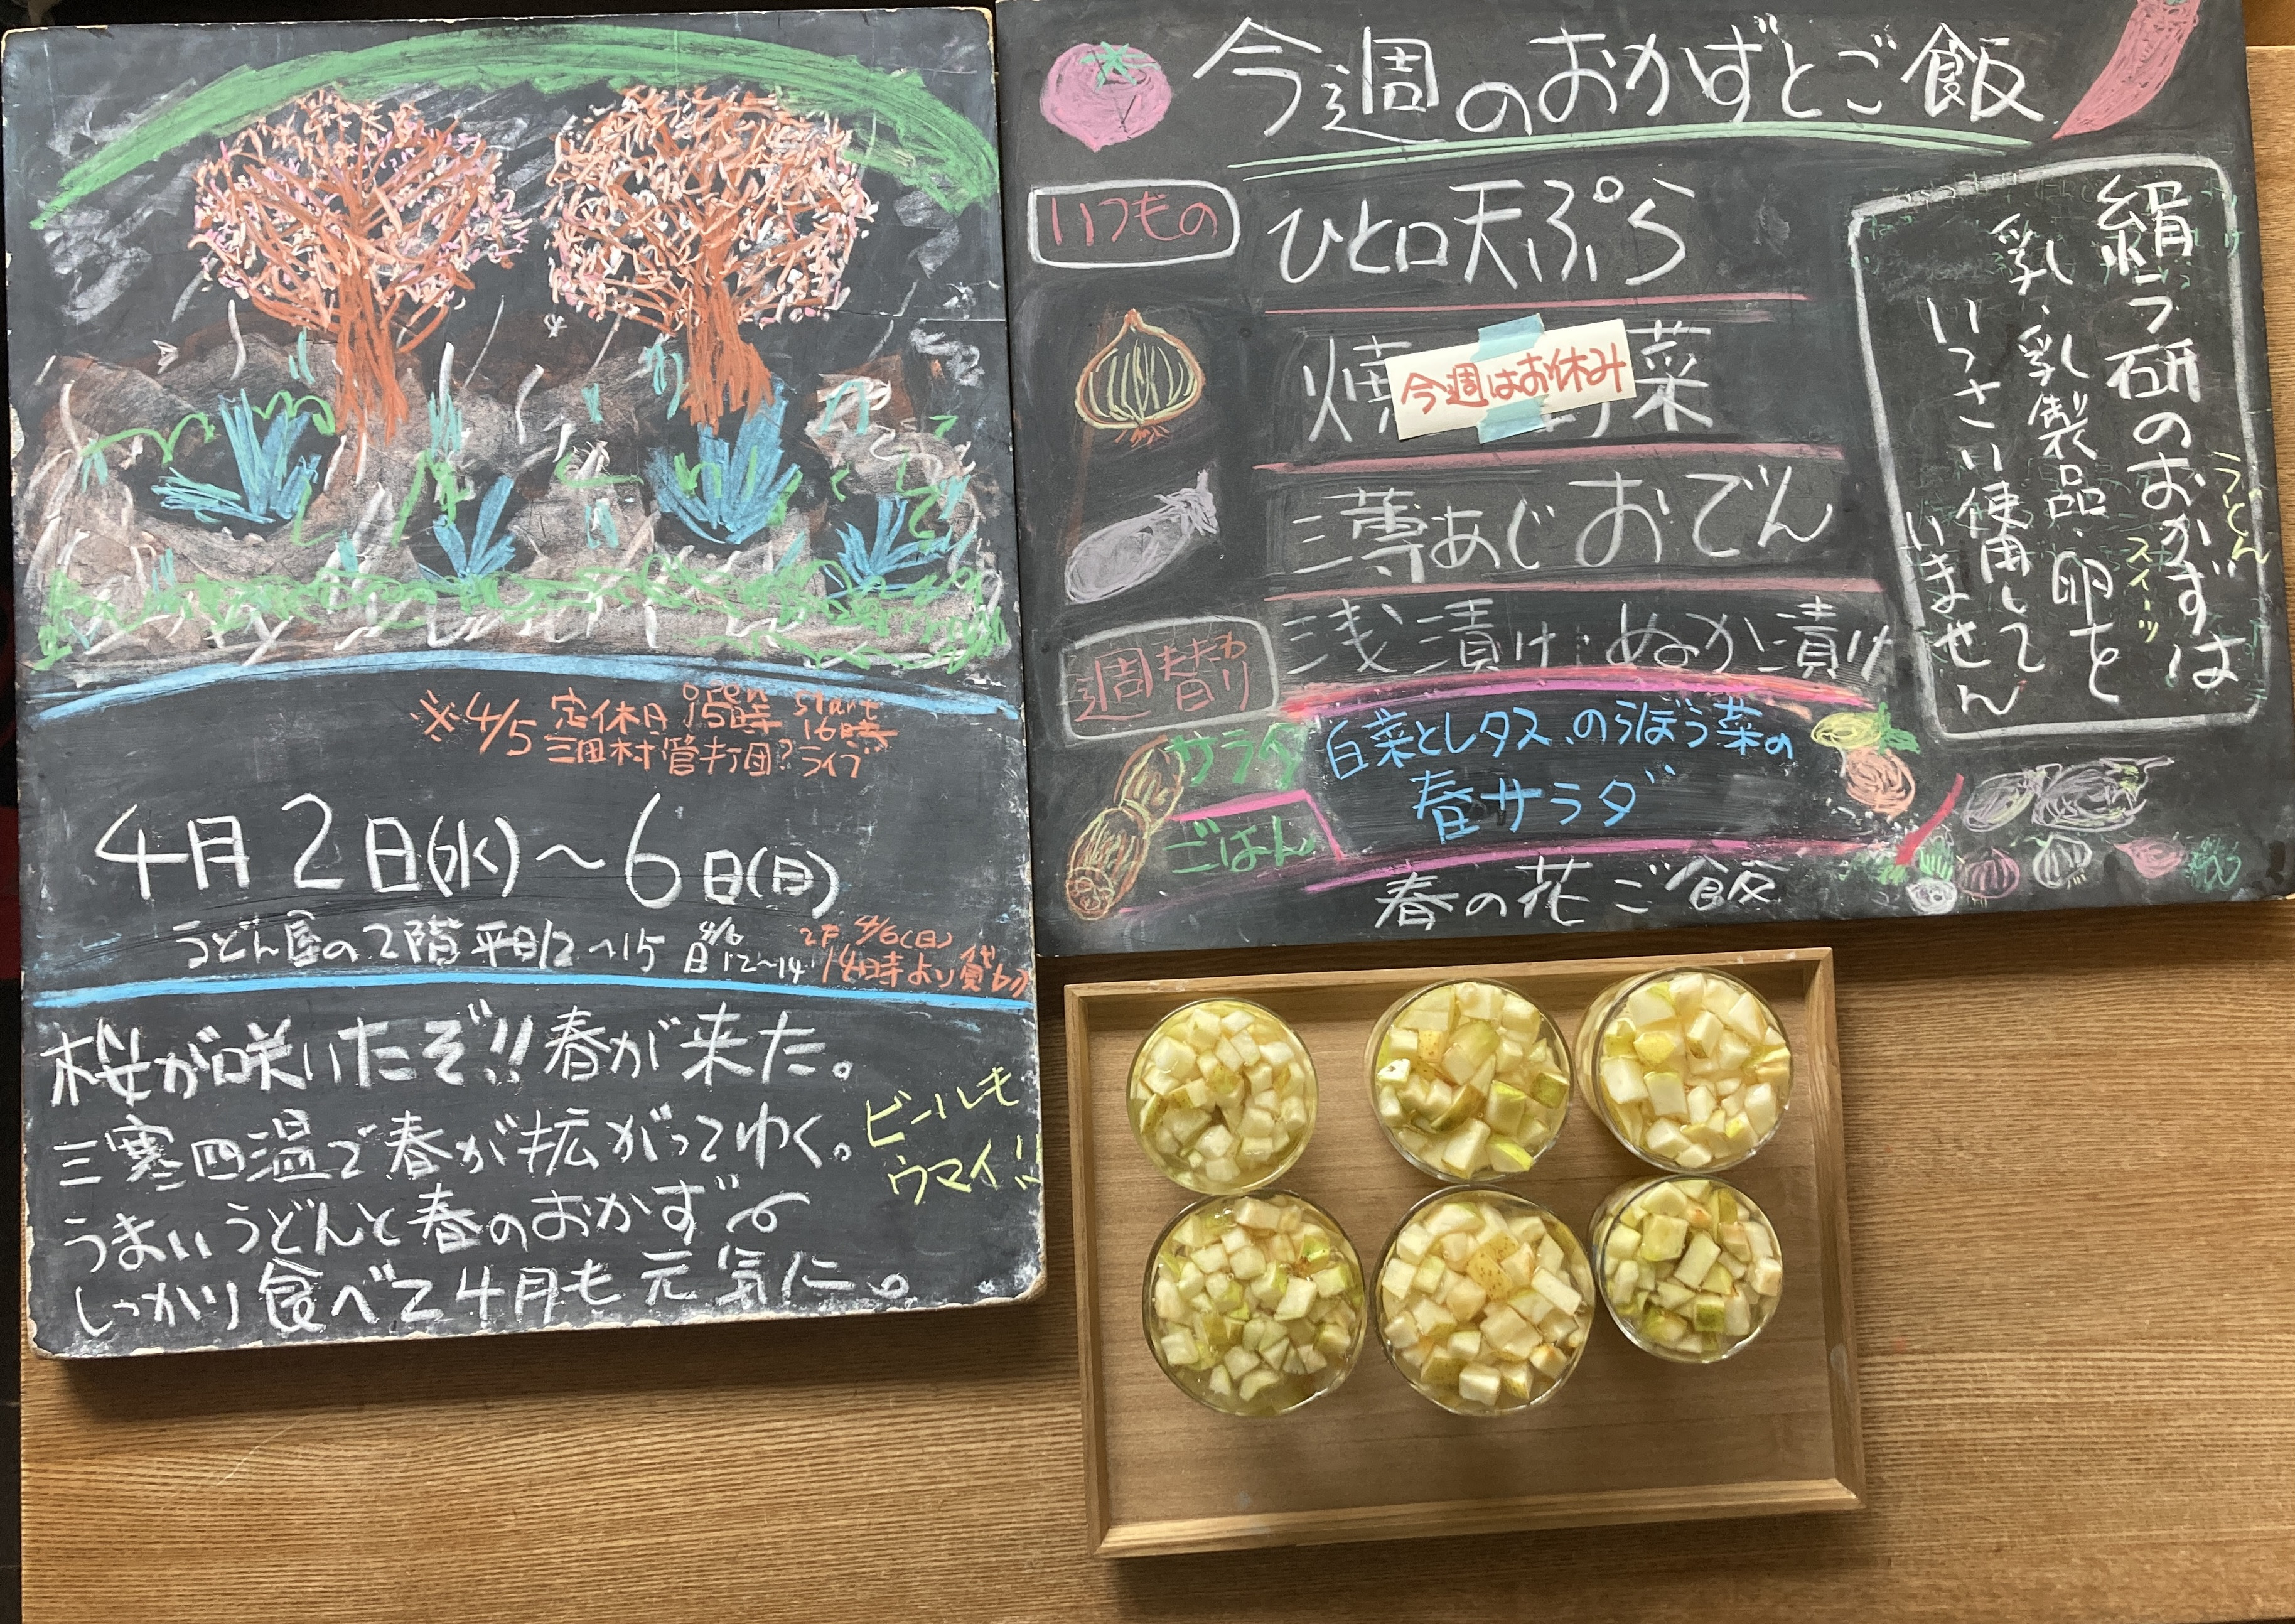 ※4/5 定休日 open 15時 start 16時
三田村管打団?ライブ
4月2日(水)〜6日(日)
うどん屋の2階 平日12〜15 4/6 日12〜14 2F 4/6(日) 14時より貸切
桜が咲いたぞ!!春が来た。
三寒四温で春が拡がってゆく。
うまいうどんと春のおかず
しっかり食べて4月も元気に。
ビールも
ウマイッ
今週のおかずとご飯
いつもの
ひと口天ぷら
焼 菜
今週はお休み
おでん
浅漬け ぬか漬け
週替り
サラダ
白菜とレタス、のらぼう菜の
春サラダ
ごはん
春の花ご飯
絹ラ研のおかずは
うどん
スイーツ
乳・乳製品・卵を
いっさい使用して
いません